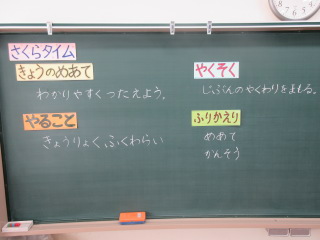 さくらタイム
きょうのめあて
わかりやすくつたえよう。
やること
きょうりょく ふくわらい
やくそく
じぶんのやくわりをまもる。
ふりかえり
めあて
かんそう